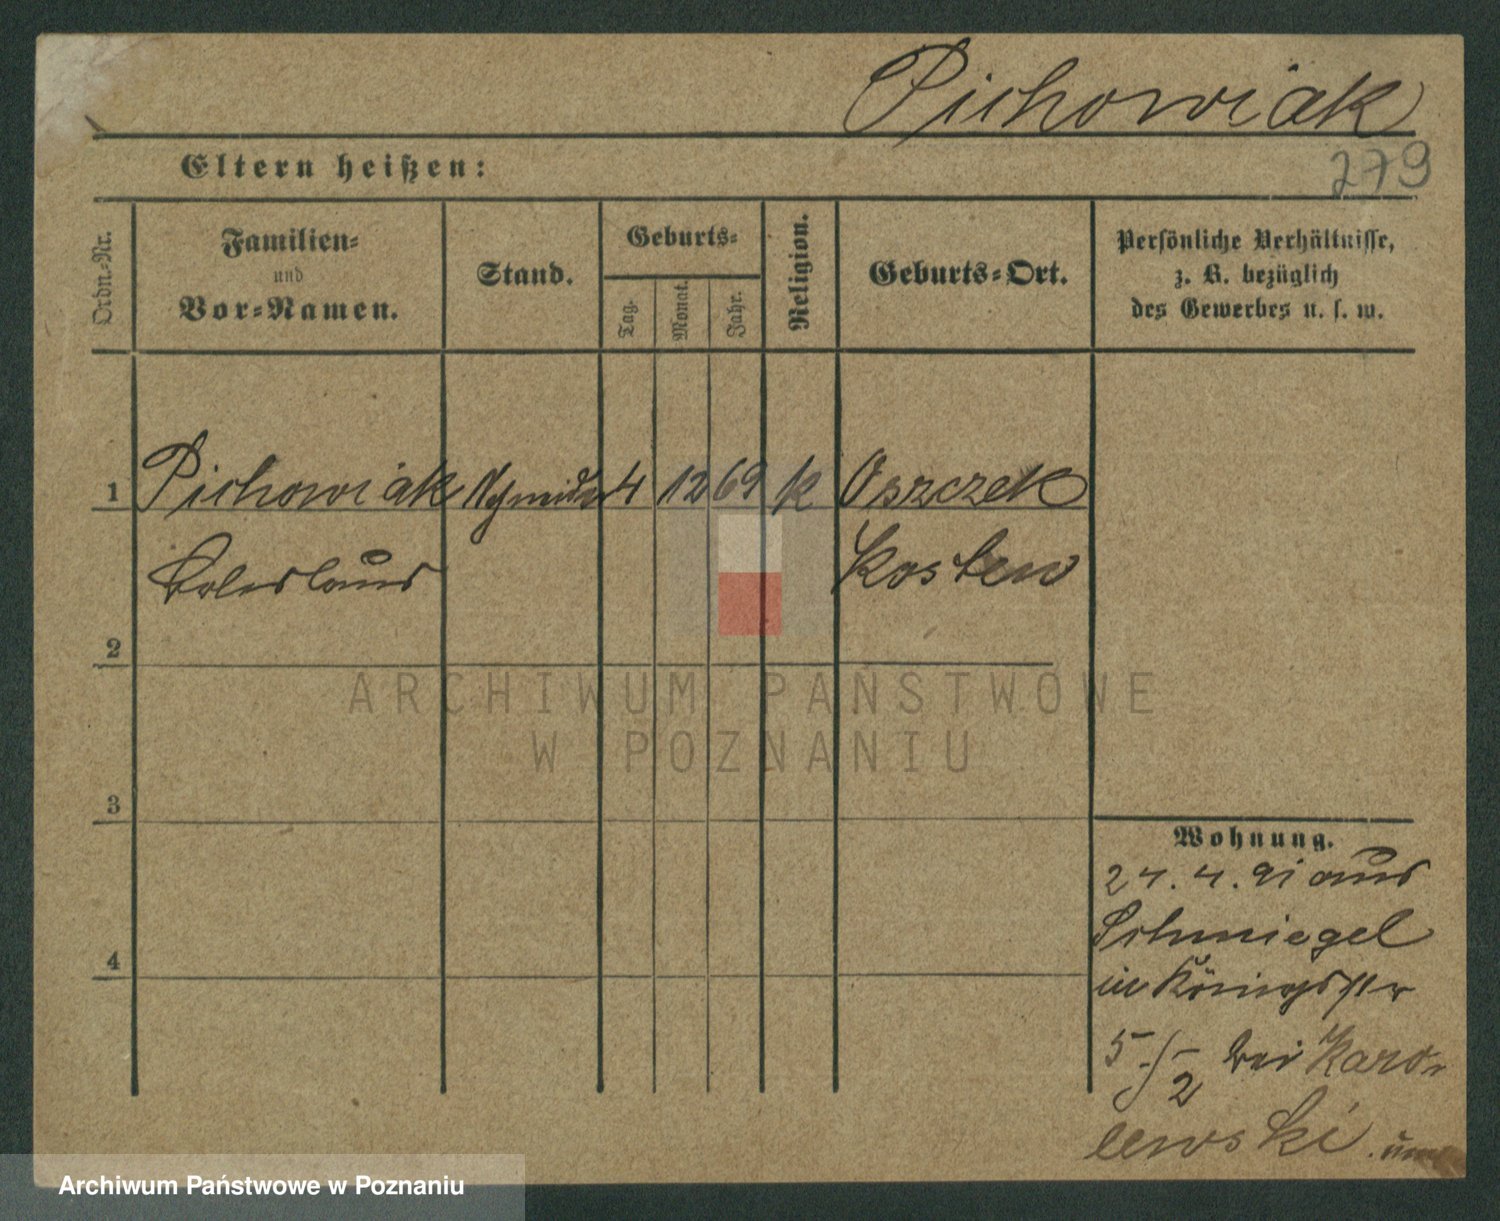 Pichowiak
279
Eltern heißen:
Ordn.-Nr.
Familien-
und
Vor-Namen.
Stand.
Geburts-
Tag.
Monat.
Jahr.
Religion.
Geburts-Ort.
Persönliche Verhältnisse,
z. B. bezüglich
des Gewerbes u. s. w.
1 Pichowiak Schneider 4 12 69 k Oszczek
Boleslaus Kosten
2
3
4
Wohnung.
24. 4. 91 aus
Schmiegel
in Königstr
5 bei Karo-
lewski
ARCHIWUM PAŃSTWOWE
W POZNANIU
Archiwum Państwowe w Poznaniu